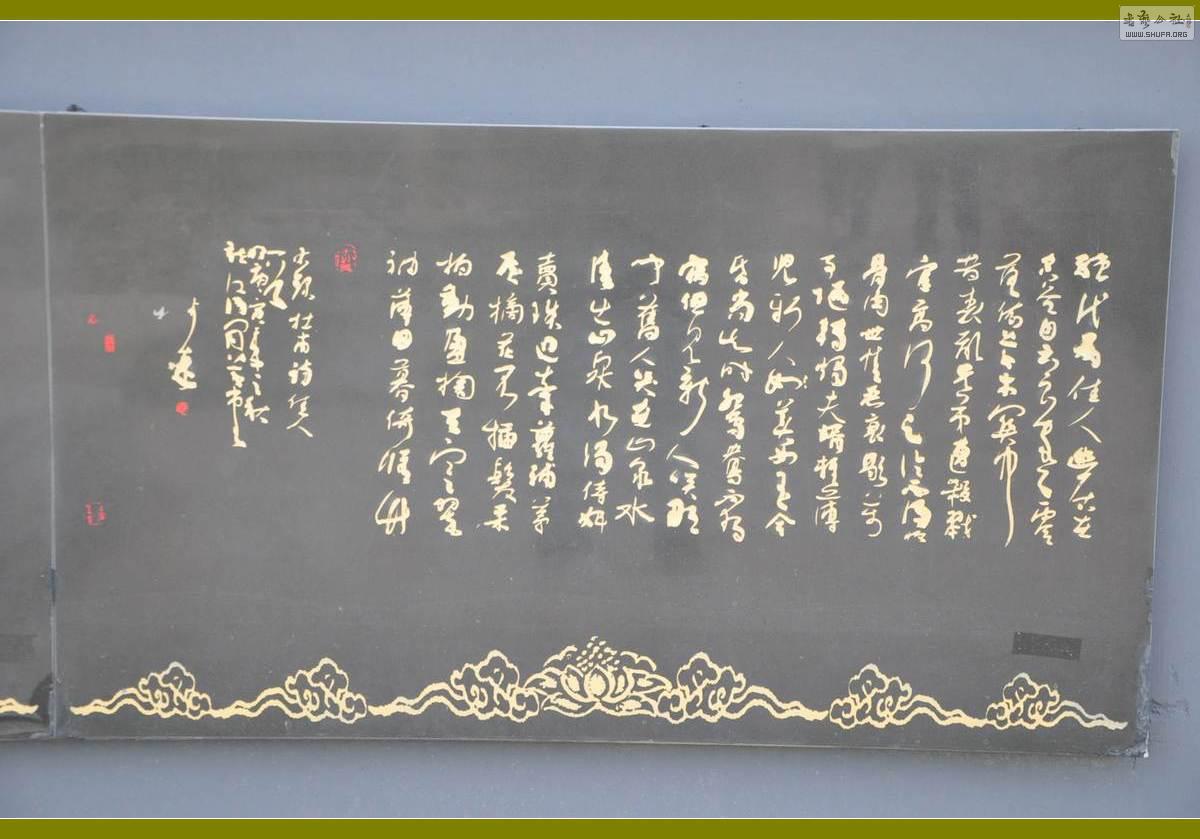 絕代有佳人幽居在
空谷自云良家子零
落依草木關中
昔喪亂兄弟遭殺戮
官高何足論不得收
骨肉世情惡衰歇萬
事隨轉燭夫婿輕薄
兒新人美如玉合
昏尚知時鴛鴦不獨
宿但見新人笑那
聞舊人哭在山泉水
清出山泉水濁侍婢
賣珠迴牽蘿補茅
屋摘花不插髮采
柏動盈掬天寒翠
袖薄日暮倚修竹
杜甫詩佳人
一首
书艺公社
WWW.SHUFA.ORG